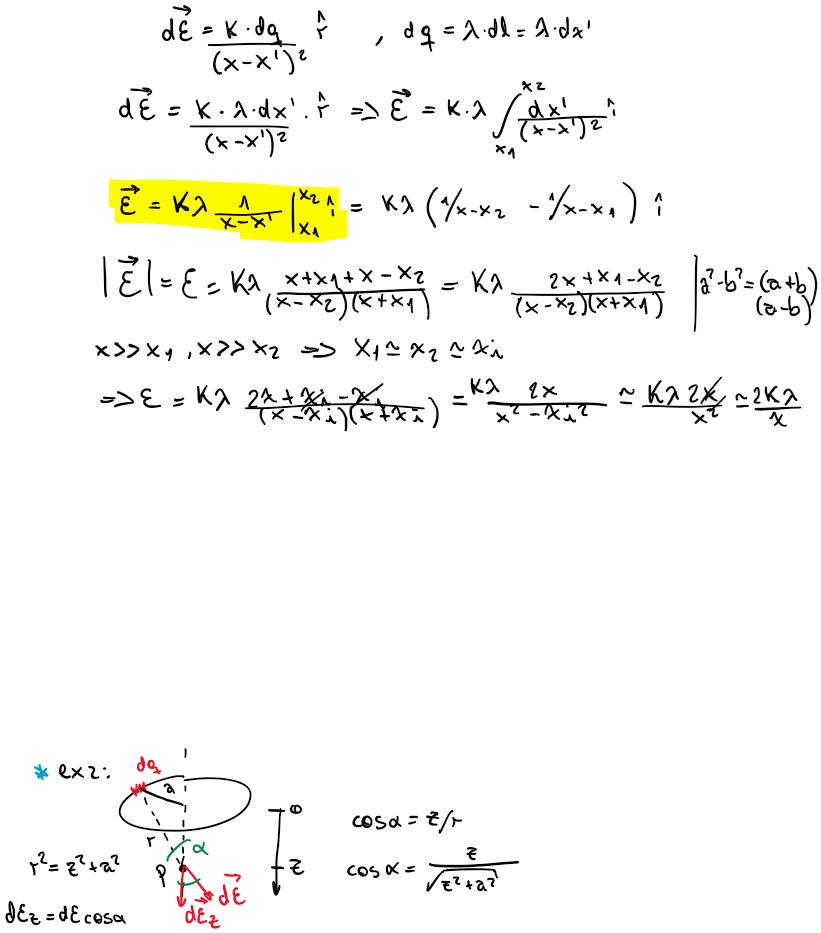 dE⃗ = K·dq/(x-x')² r̂ , dq = λ·dl = λ·dx'
dE⃗ = K·λ·dx'/(x-x')² · r̂ => E⃗ = K·λ ∫_{x1}^{x2} dx'/(x-x')² î
E⃗ = Kλ 1/(x-x') |_{x1}^{x2} î = Kλ (1/x-x2 - 1/x-x1) î
|E⃗| = E = Kλ (x+x1+x-x2)/((x-x2)(x+x1)) = Kλ (2x+x1-x2)/((x-x2)(x+x1)) | a²-b² = (a+b)
(a-b)
x>>x1, x>>x2 => x1 ≃ x2 ≃ xi
=> E = Kλ (2x+xi-xi)/((x-xi)(x+xi)) = Kλ 2x/(x²-xi²) ≃ Kλ2x/x² ≃ 2Kλ/x
* ex2:
dq
a
0
cosα = z/r
r
α
r² = z²+a²
P
z
cosα = z/√(z²+a²)
dE⃗
dE⃗z
dEz = dE cosα